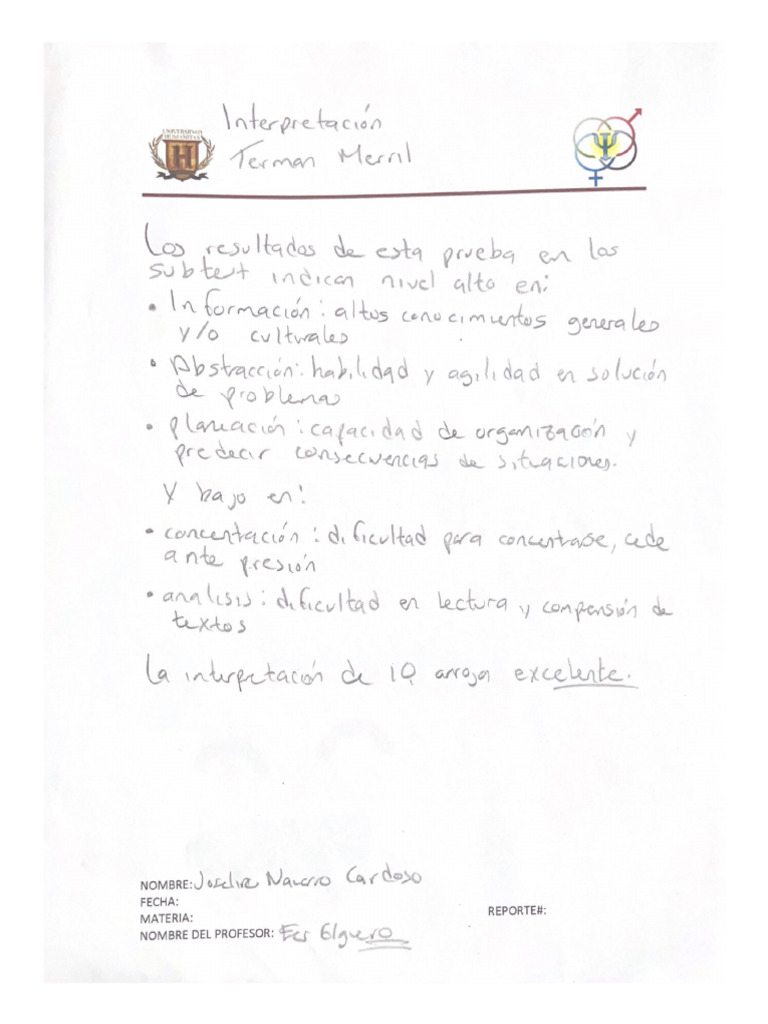 Interpretación
Terman Merril
UNIVERSIDAD
H
Los resultados de esta prueba en los
subtest indican nivel alto en:
• Información: altos conocimientos generales
y/o culturales
• Abstracción: habilidad y agilidad en solución
de problemas
• planeación: capacidad de organización y
predecir consecuencias de situaciones.
Y bajo en:
• concentación: dificultad para concentrase, cede
ante presión
• analisis: dificultad en lectura y compensión de
textos
La interpretación de IQ arroja excelente.
NOMBRE: Navarro Cardoso
FECHA:
REPORTE#:
MATERIA:
NOMBRE DEL PROFESOR: Elguero